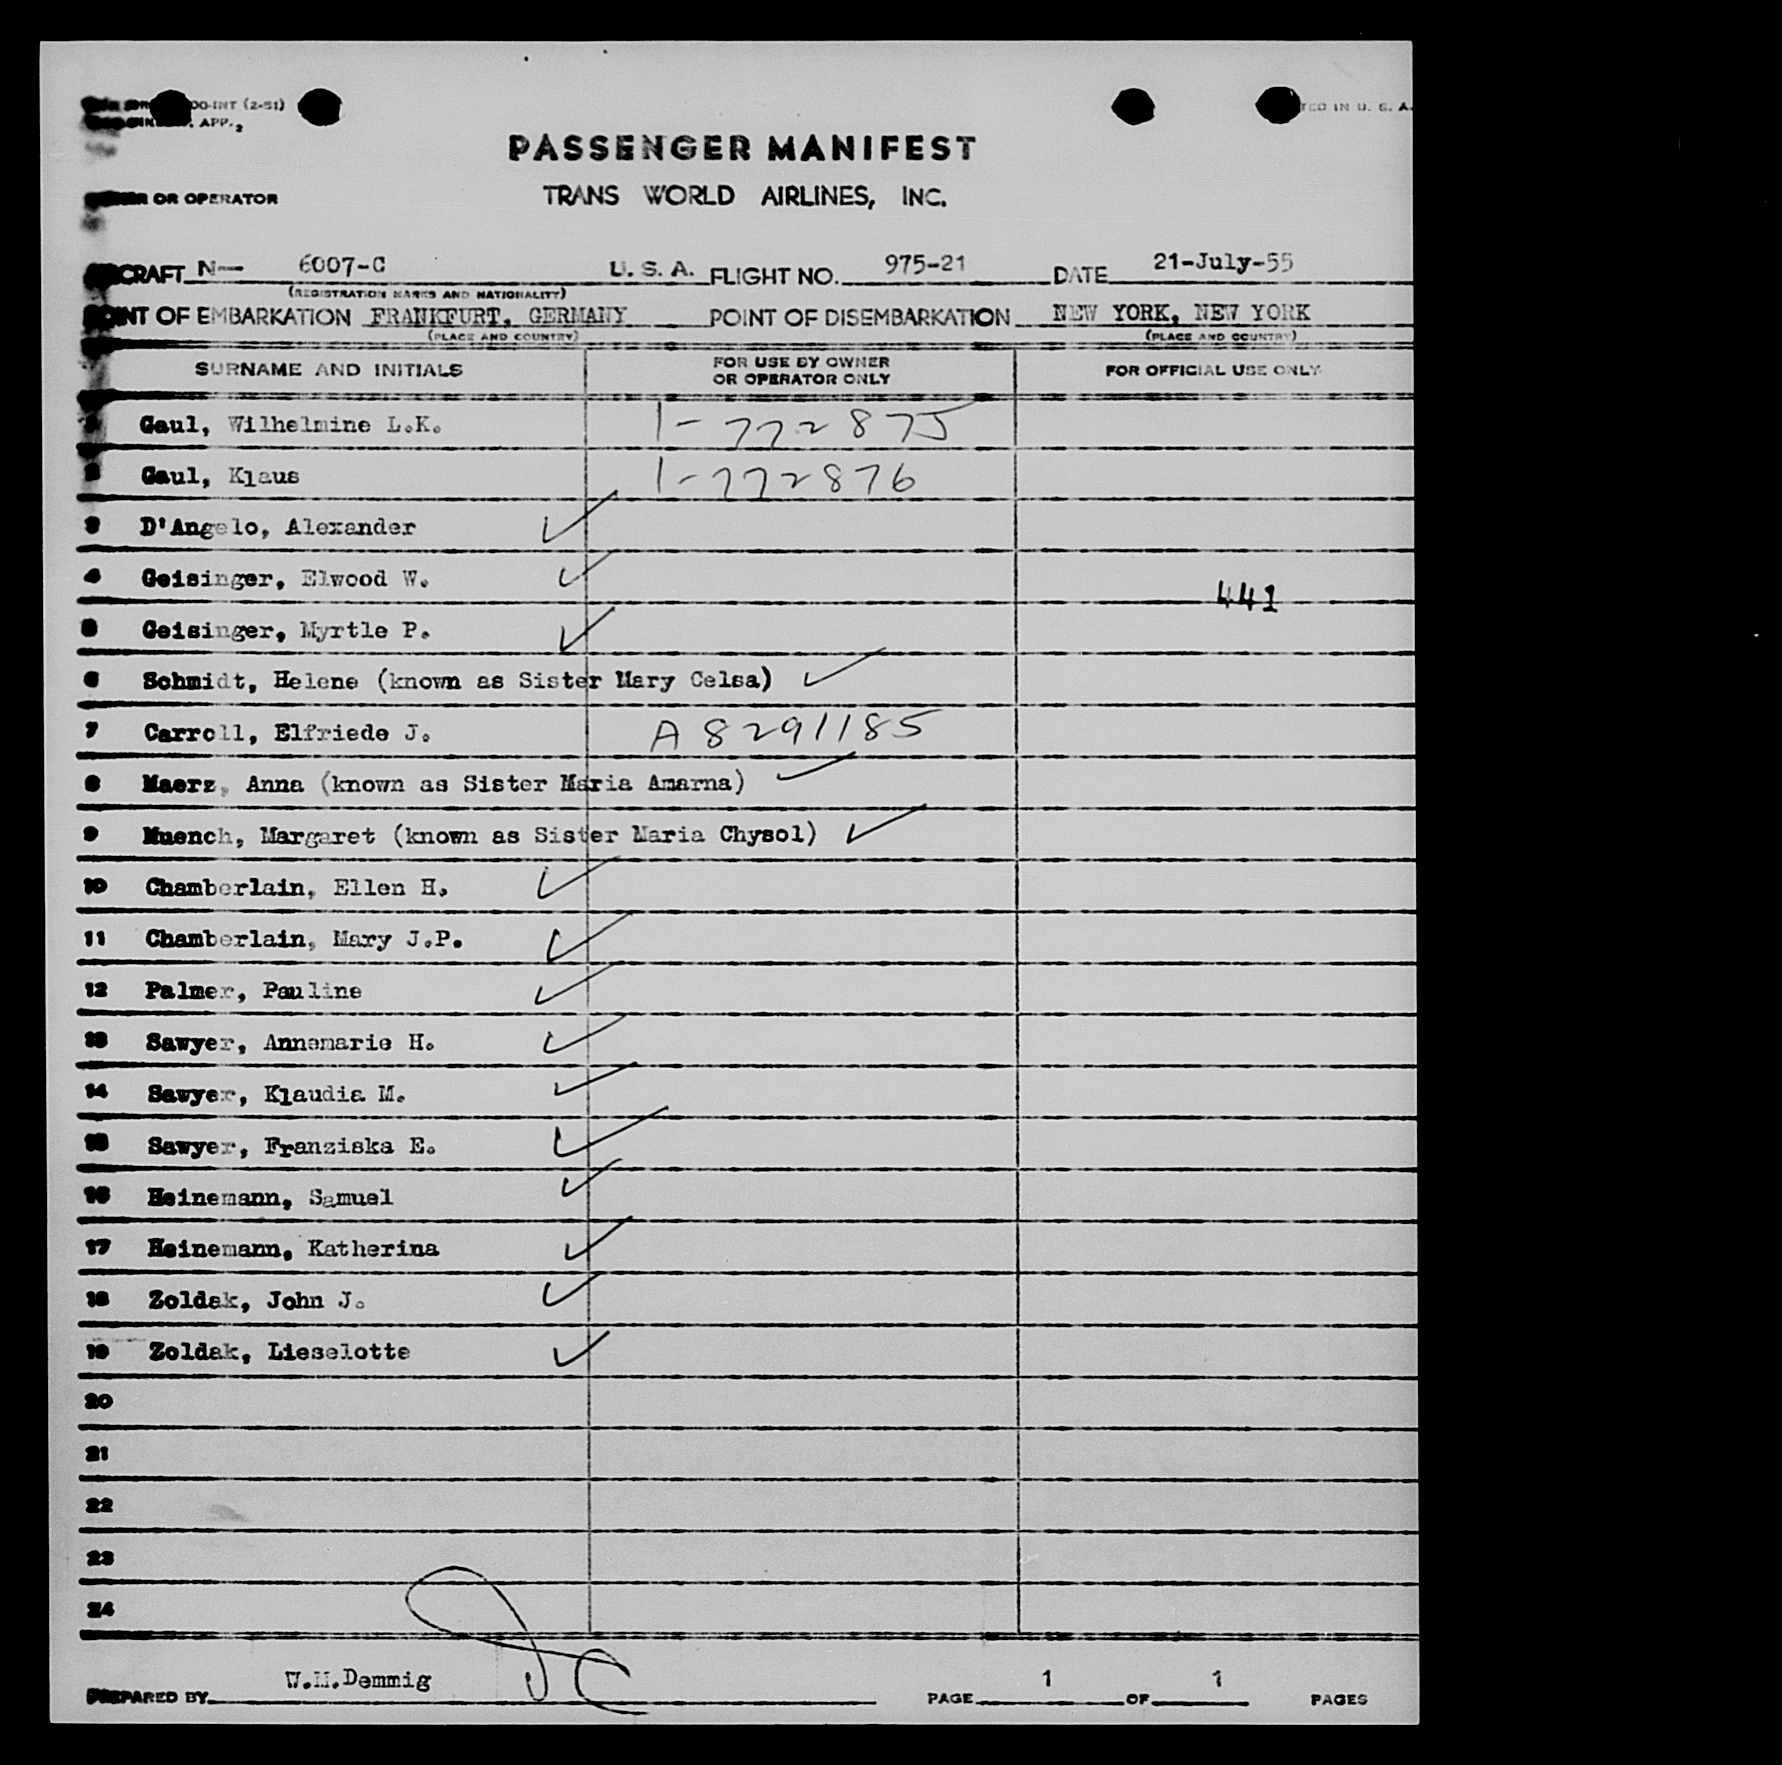 OO-INT (2-51)
TED IN U. S. A.
APP.
PASSENGER MANIFEST
OR OPERATOR
TRANS WORLD AIRLINES, INC.
AIRCRAFT N— 6007-C U. S. A. FLIGHT NO. 975-21 DATE 21-July-55
(REGISTRATION MARKS AND NATIONALITY)
POINT OF EMBARKATION FRANKFURT, GERMANY POINT OF DISEMBARKATION NEW YORK, NEW YORK
(PLACE AND COUNTRY) (PLACE AND COUNTRY)
SURNAME AND INITIALS FOR USE BY OWNER OR OPERATOR ONLY FOR OFFICIAL USE ONLY
1 Gaul, Wilhelmine L.K. 1-772875
2 Gaul, Klaus 1-772876
3 D'Angelo, Alexander ✓
4 Geisinger, Elwood W. ✓
441
5 Geisinger, Myrtle P. ✓
6 Schmidt, Helene (known as Sister Mary Celsa) ✓
7 Carroll, Elfriede J. A8291185
8 Maerz, Anna (known as Sister Maria Amarna) ✓
9 Muench, Margaret (known as Sister Maria Chysol) ✓
10 Chamberlain, Ellen H. ✓
11 Chamberlain, Mary J.P. ✓
12 Palmer, Pauline ✓
13 Sawyer, Annemarie H. ✓
14 Sawyer, Klaudia M. ✓
15 Sawyer, Franziska E. ✓
16 Heinemann, Samuel ✓
17 Heinemann, Katherina ✓
18 Zoldak, John J. ✓
19 Zoldak, Lieselotte ✓
20
21
22
23
24
PREPARED BY W.M.Demmig PAGE 1 OF 1 PAGES